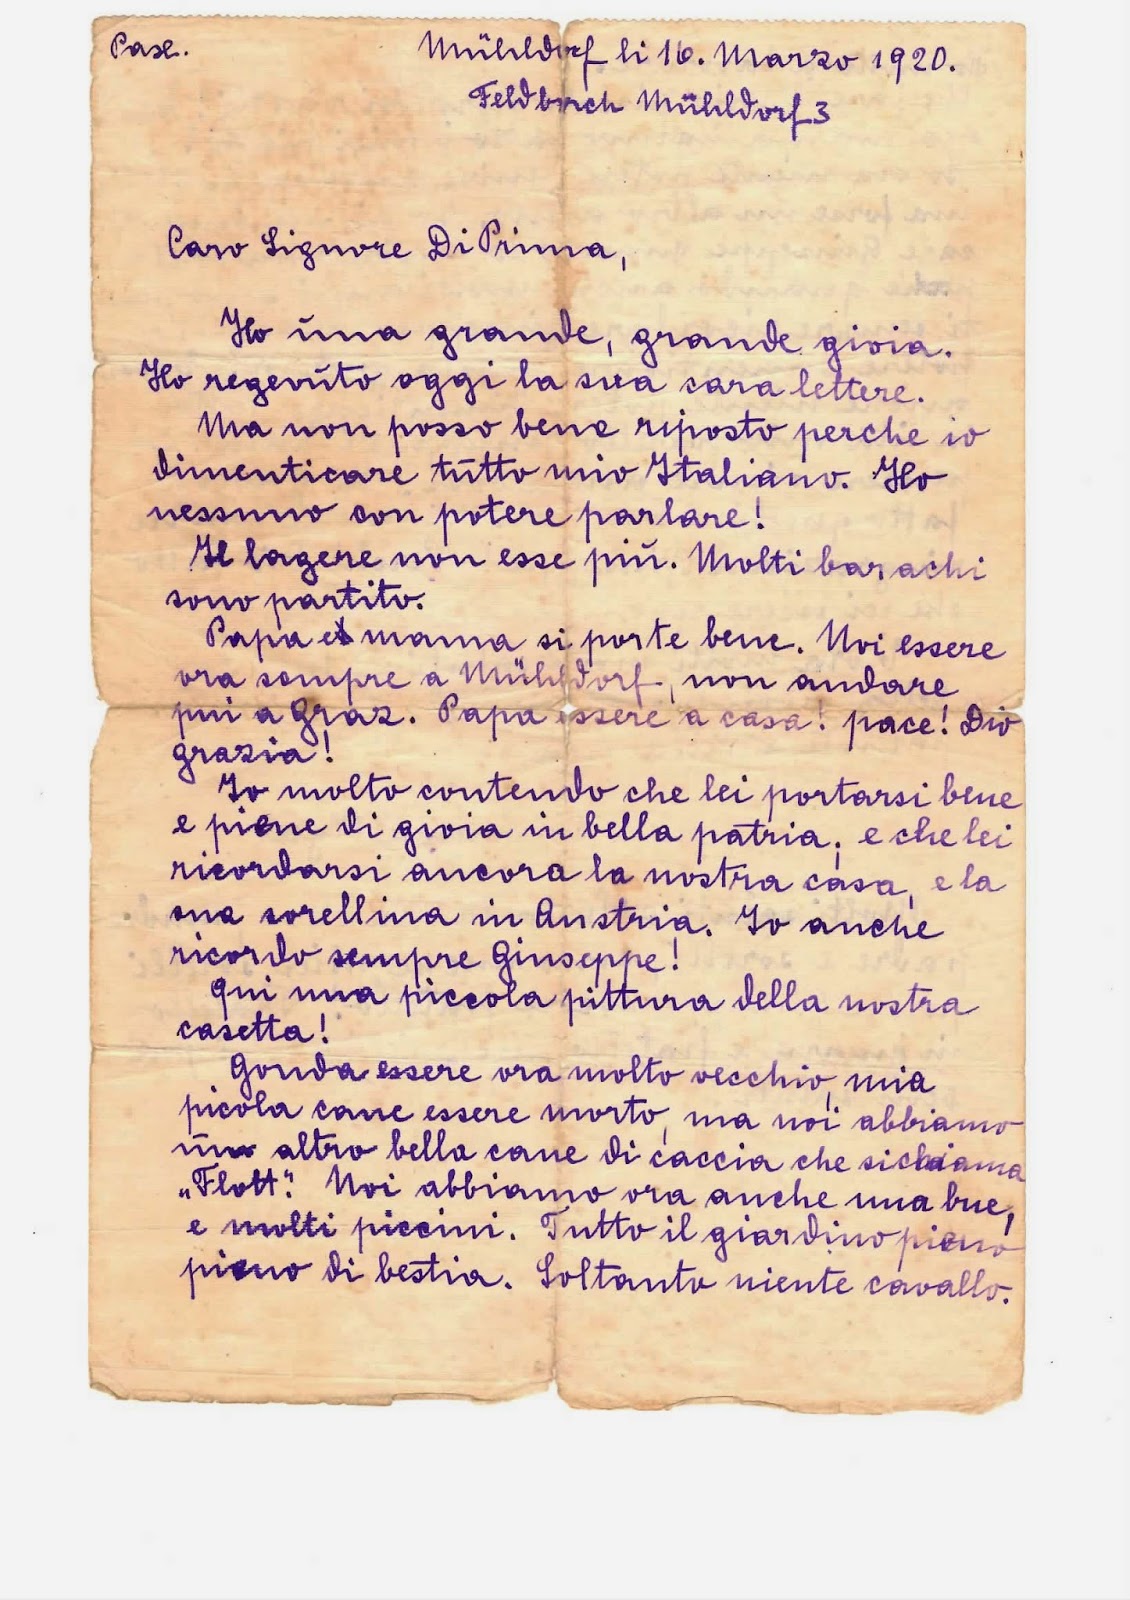 Pax.
Mühldorf li 16. Marzo 1920.
Feldbach Mühldorf 3
Caro Signore Di Prima,
Ho ūna grande, grande gioia.
Ho regevūto oggi la sua cara lettere.
Ma non posso bene riposto perche io
dimenticare tūtto mio Italiano. Ho
nessuno con potere parlare!
Il lagere non esse piū. Molti barachi
sono partito.
Papa et mama si porte bene. Noi essere
ora sempre a Mühldorf, non andare
pui a Graz. Papa essere a casa! pace! Dio
grazia!
Io molto contendo che lei portarsi bene
e piene di gioia in bella patria, e che lei
ricordarsi ancora la nostra casa, e la
sua sorellina in Austria. Io anche
ricordo sempre Giuseppe!
Qui una piccola pittura della nostra
casetta!
Gonda essere ora molto vecchio, mia
picola cane essere morto, ma noi abbiamo
ūn altro bella cane di caccia che sichiama
„Flott". Noi abbiamo ora anche una bue,
e molti piccini. Tutto il giardino pieno
pieno di bestia. Soltanto niente cavallo.